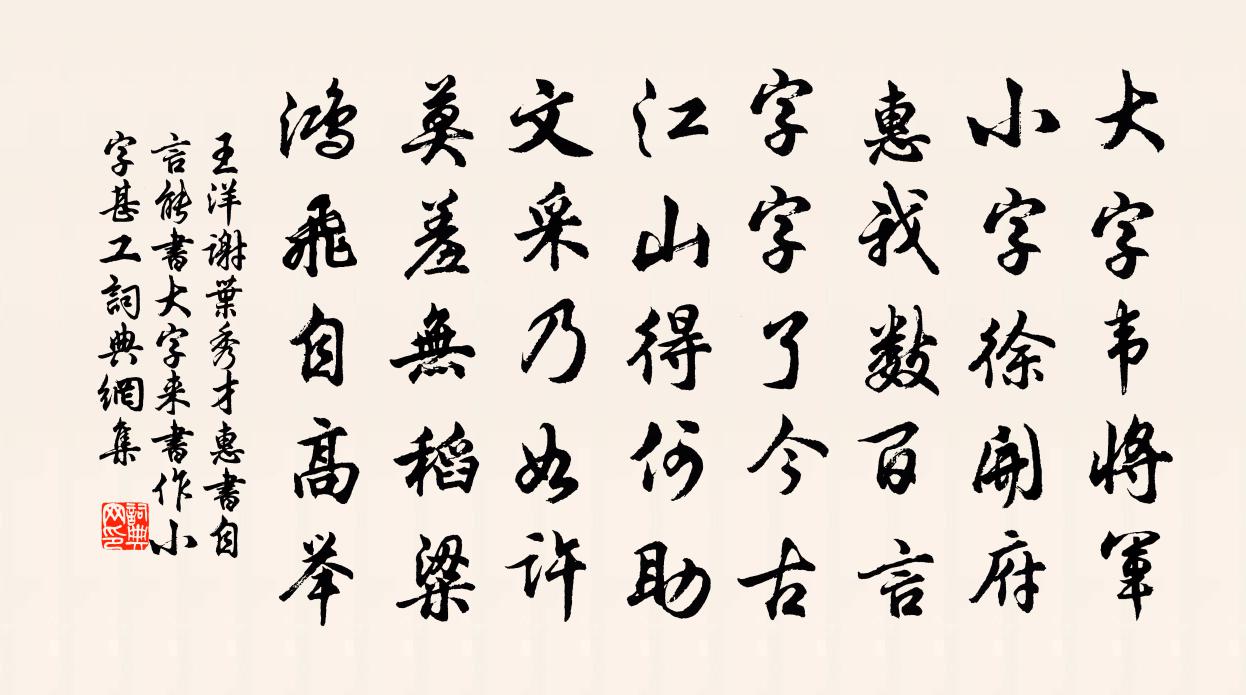 大字韦將軍
小字徐開府
惠我數百言
字字了今古
江山得何助
文采乃如許
莫羞無稻粱
鴻飛自高举
王洋謝葉秀才惠書自
言能書大字来書作小
字甚工詞典網集
詞典
网印